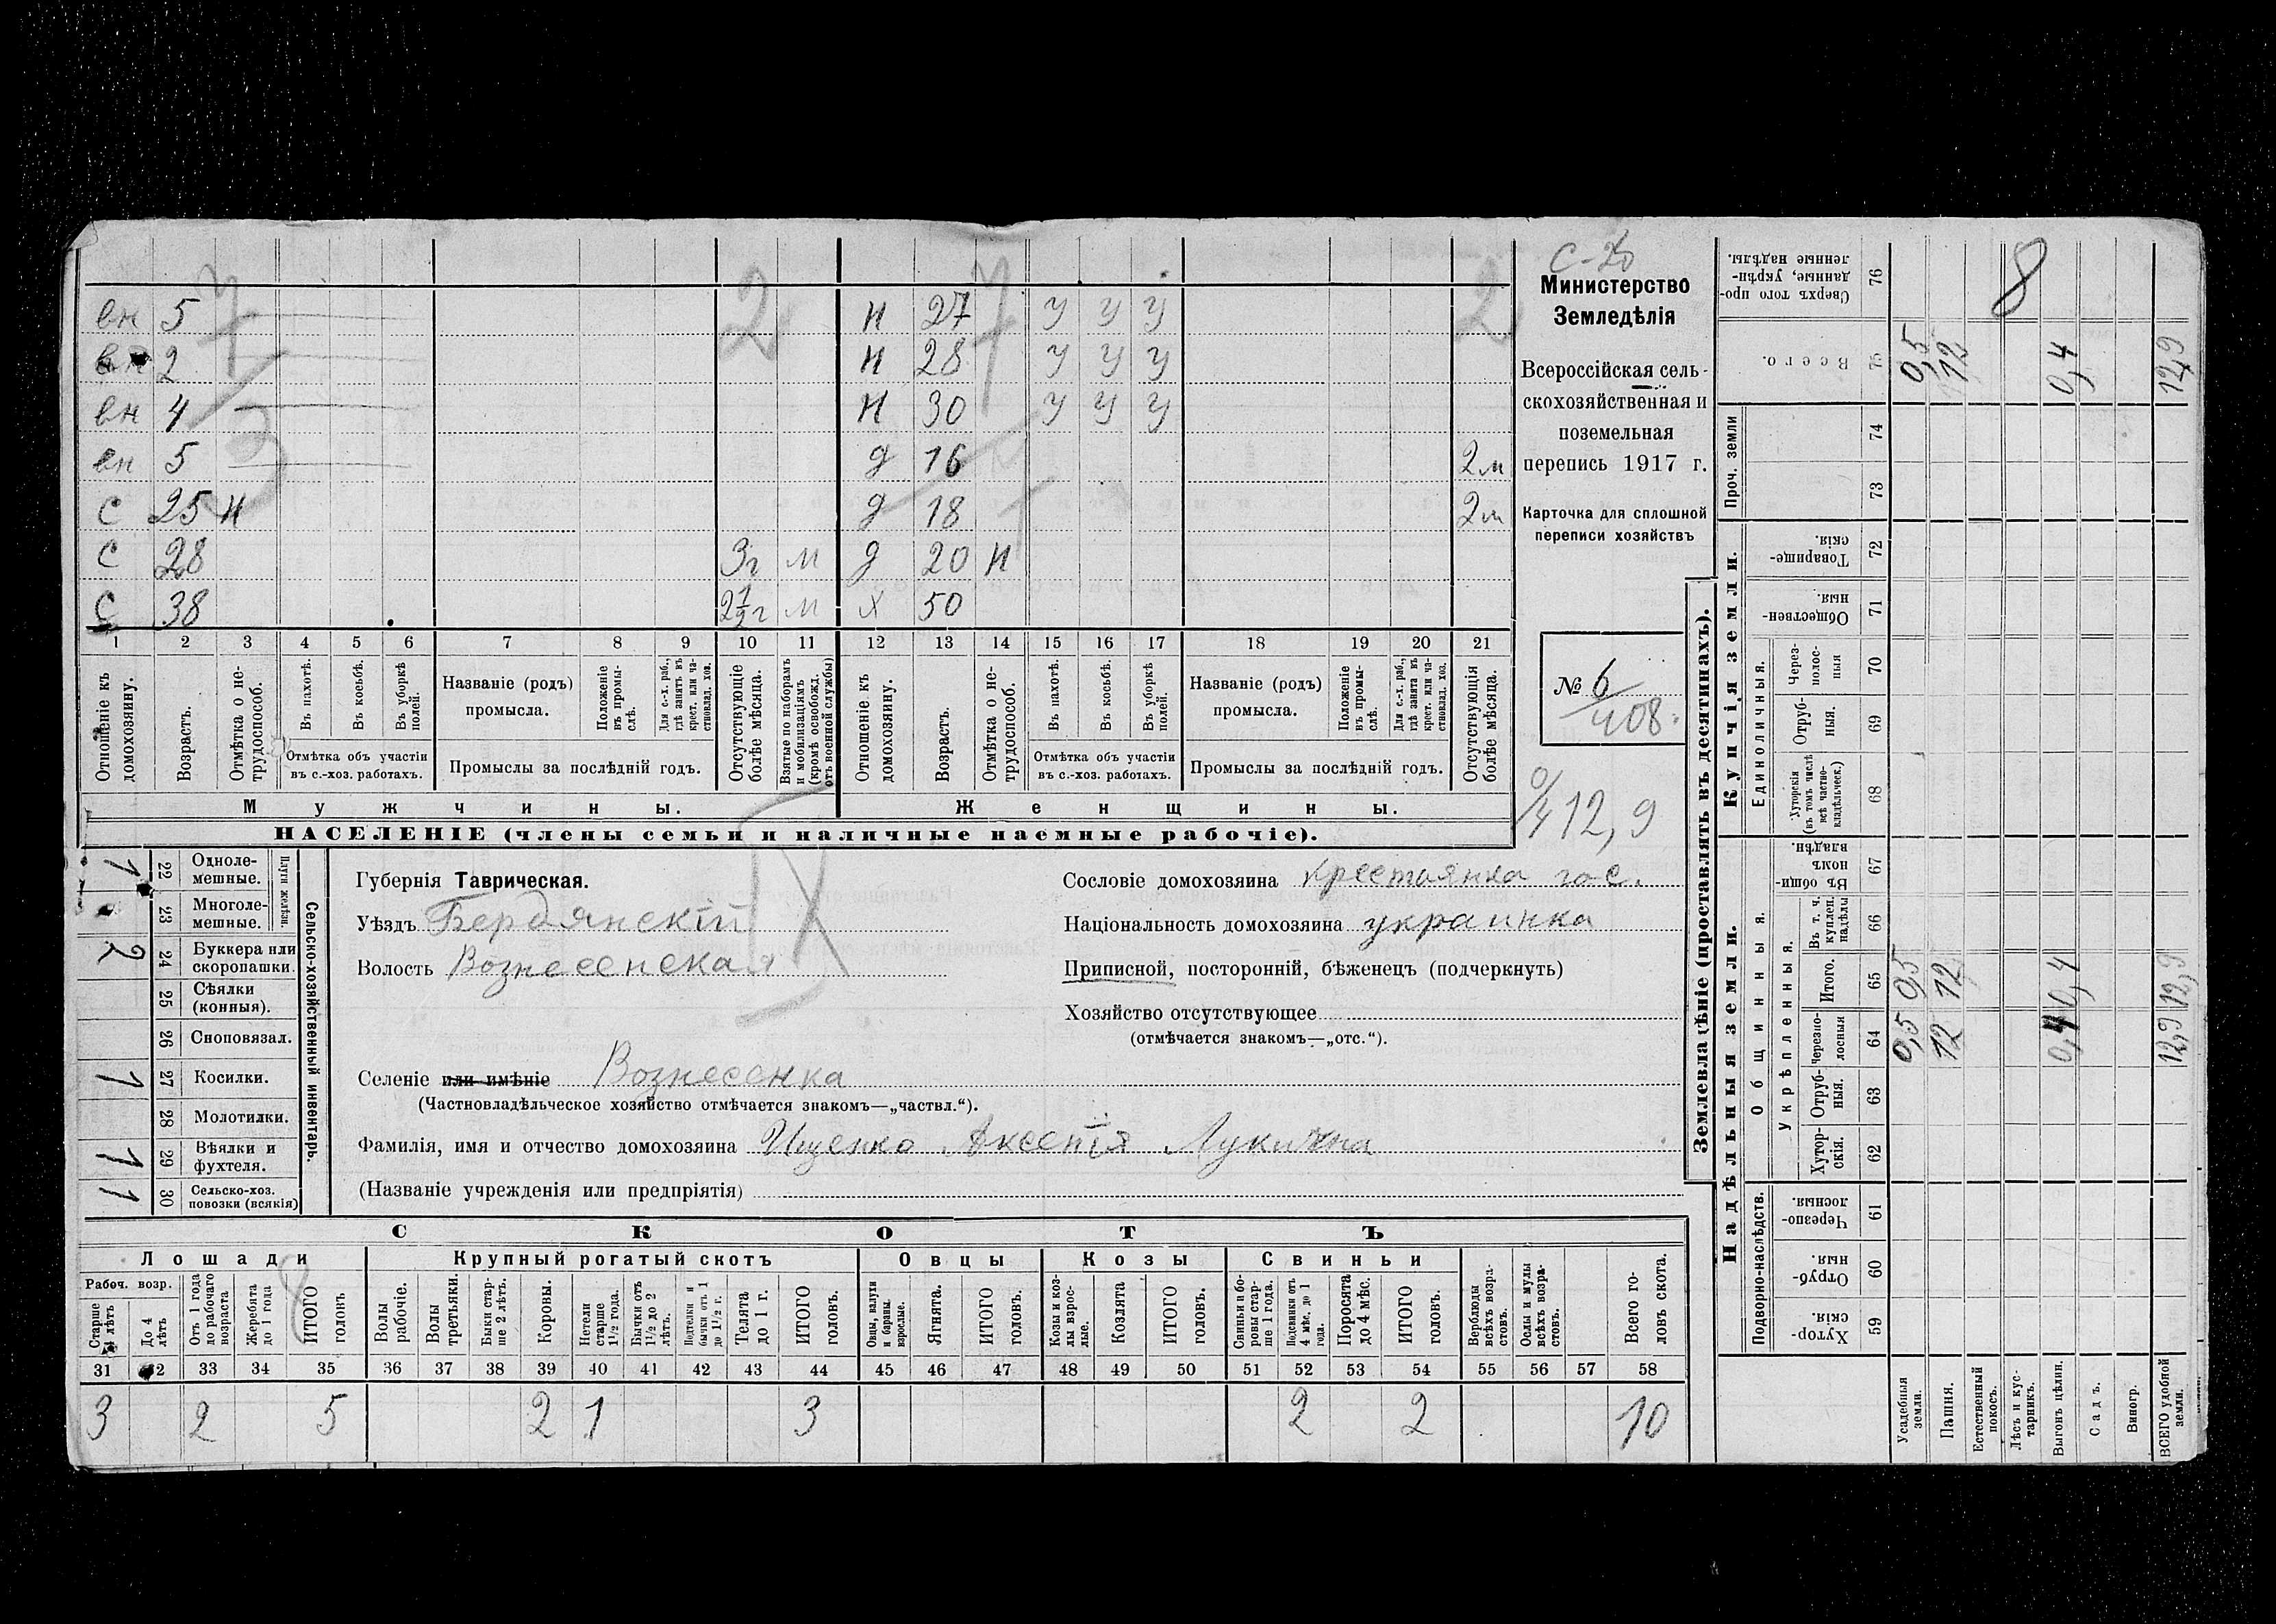 С-До
Министерство
Земледѣлія
Всероссійская сель-
скохозяйственная и
поземельная
перепись 1917 г.
Карточка для сплошной
переписи хозяйствъ
№ 6/408.
12,9
7 2 7 2
вн 5 н 27 У У У
вн 2 н 28 У У У
вн 4 н 30 У У У
вн 5 д 16 2м
С 25 н д 18 2м
С 28 3г м д 20 н
С 38 2½г м Х 50
1 2 3 4 5 6 7 8 9 10 11 12 13 14 15 16 17 18 19 20 21
Отношеніе къ домохозяину.
Возрастъ.
Отмѣтка о не-трудоспособ.
Въ пахотѣ.
Въ косьбѣ.
Въ уборкѣ полей.
Отмѣтка объ участіи въ с.-хоз. работахъ.
Названіе (родъ) промысла.
Положеніе въ промы-слѣ.
Для с.-х. раб., гдѣ занятъ въ крест. или ча-стновлад. хоз.
Промыслы за послѣдній годъ.
Отсутствующіе болѣе мѣсяца.
Взятые по наборамъ и мобилизаціямъ (кромѣ освобожд. отъ военной службы)
Отношеніе къ домохозяину.
Возрастъ.
Отмѣтка о не-трудоспособ.
Въ пахотѣ.
Въ косьбѣ.
Въ уборкѣ полей.
Отмѣтка объ участіи въ с.-хоз. работахъ.
Названіе (родъ) промысла.
Положеніе въ промы-слѣ.
Для с.-х. раб., гдѣ занята въ крест. или ча-стновлад. хоз.
Промыслы за послѣдній годъ.
Отсутствующія болѣе мѣсяца.
Мужчины. Женщины.
НАСЕЛЕНІЕ (члены семьи и наличные наемные рабочіе).
Сельско-хозяйственный инвентарь.
Плуги желѣзн.
1 22 Одноле-мешные.
23 Многоле-мешные.
2 24 Буккера или скоропашки.
25 Сѣялки (конныя).
26 Сноповязал.
1 27 Косилки.
28 Молотилки.
1 29 Вѣялки и фухтеля.
1 30 Сельско-хоз. повозки (всякія)
Губернія Таврическая.
Уѣздъ Бердянскій
Волость Вознесенская
Сословіе домохозяина крестьянка гос.
Національность домохозяина украинка
Приписной, посторонній, бѣженецъ (подчеркнуть)
Хозяйство отсутствующее
(отмѣчается знакомъ—„отс.“).
Селеніе или имѣніе Вознесенка
(Частновладѣльческое хозяйство отмѣчается знакомъ—„частвл.“).
Фамилія, имя и отчество домохозяина Ищенко Аксенія Лукична
(Названіе учрежденія или предпріятія)
СКОТЪ
Лошади Крупный рогатый скотъ Овцы Козы Свиньи
Рабоч. возр.
Старше 4 лѣтъ
До 4 лѣтъ
Отъ 1 года до рабочаго возраста
Жеребята до 1 года
ИТОГО головъ
Волы рабочіе.
Волы третьяки.
Быки стар-ше 2 лѣтъ.
Коровы.
Нетели старше 1½ года.
Бычки отъ 1½ до 2 лѣтъ.
Подтелки и бычки отъ 1 до 1½ г.
Телята до 1 г.
ИТОГО головъ.
Овцы, валухи и бараны взрослые.
Ягнята.
ИТОГО головъ.
Козы и коз-лы взрос-лые.
Козлята
ИТОГО головъ.
Свиньи и бо-ровы стар-ше 1 года.
Подсвинки отъ 4 мѣс. до 1 года.
Поросята до 4 мѣс.
ИТОГО головъ.
Верблюды всѣхъ возра-стовъ.
Ослы и мулы всѣхъ возра-стовъ.
Всего го-ловъ скота.
31 32 33 34 35 36 37 38 39 40 41 42 43 44 45 46 47 48 49 50 51 52 53 54 55 56 57 58
3 2 5 2 1 3 2 2 10
Землевладѣніе (проставлять въ десятинахъ).
Надѣльныя земли. Купчія земли. Проч. земли
Подворно-наслѣдств. Общинныя. Единоличныя.
Укрѣпленныя.
8
Сверхъ того про-данные, укрѣп-ленные надѣлы. 76
Всего. 75 0,5 12 0,4 12,9
74
73
Товарище-скія. 72
Обществен-ныя. 71
Через-полос-ныя 70
Отруб-ныя. 69
Хуторскія (въ томъ числѣ всѣ частно-владѣльческ.) 68
Въ общин-номъ владѣн. 67
Въ т. ч. куплен. надѣлы 66
Итого. 65 0,5 12 0,4 12,9
Черезпо-лосныя 64 0,5 12 0,4 12,9
Отруб-ныя. 63
Хутор-скія. 62
Черезпо-лосныя 61
Отруб-ныя. 60
Хутор-скія. 59
Усадебныя земли.
Пашня.
Естественный покосъ.
Лѣсъ и кус-тарникъ.
Выгонъ цѣлин.
Садъ.
Виногр.
ВСЕГО удобной земли.